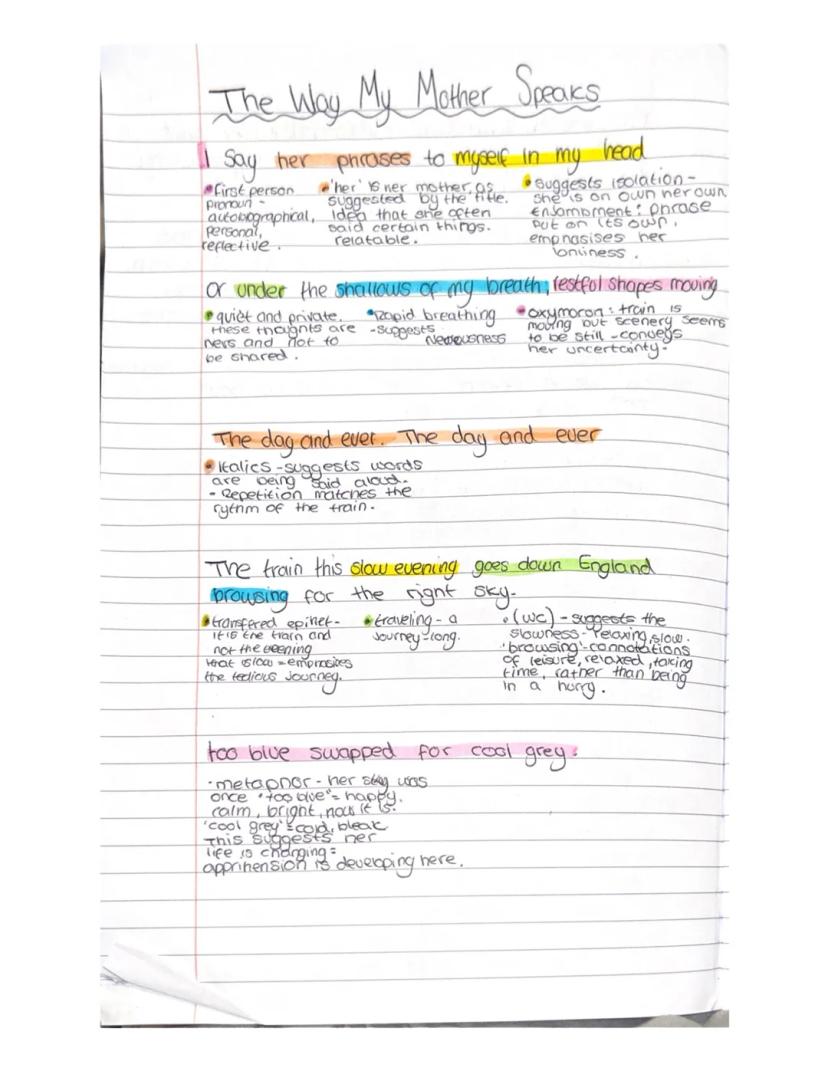 The Way My Mother Speaks
I Say her phrases to myself in my head
• first person
pronoun -
autobiographical,
personal,
reflective.
• 'her' is her mother, as
suggested by the title.
Idea that she often
said certain things.
relatable.
• suggests isolation -
she is on own her own
Enjambment: phrase
put on its own.
emphasises her
lonliness.
or under the shallows of my breath, restful shapes moving
• quiet and private.
these thoughts are
hers and not to
be shared.
• Rapid breathing
- suggests
Nervousness
• oxymoron: train is
moving but scenery seems
to be still - conveys
her uncertainty.
The day and ever. The day and ever
• Italics - suggests words
are being said aloud.
- Repetition matches the
rythm of the train.
The train this slow evening goes down England
browsing for the right sky.
• transfered epihet -
it is the train and
not the evening
that is slow = emphasizes
the tedious journey.
• traveling - a
journey - long.
• (WC) - suggests the
slowness - relaxing, slow.
'browsing' - connotations
of leisure, relaxed, taking
time, rather than being
in a hurry.
too blue swapped for cool grey.
• metaphor - her sky was
once "too blue" = happy,
calm, bright, now it is
'cool grey' = cold, bleak
This suggests her
life is changing =
apprihension is developing here.